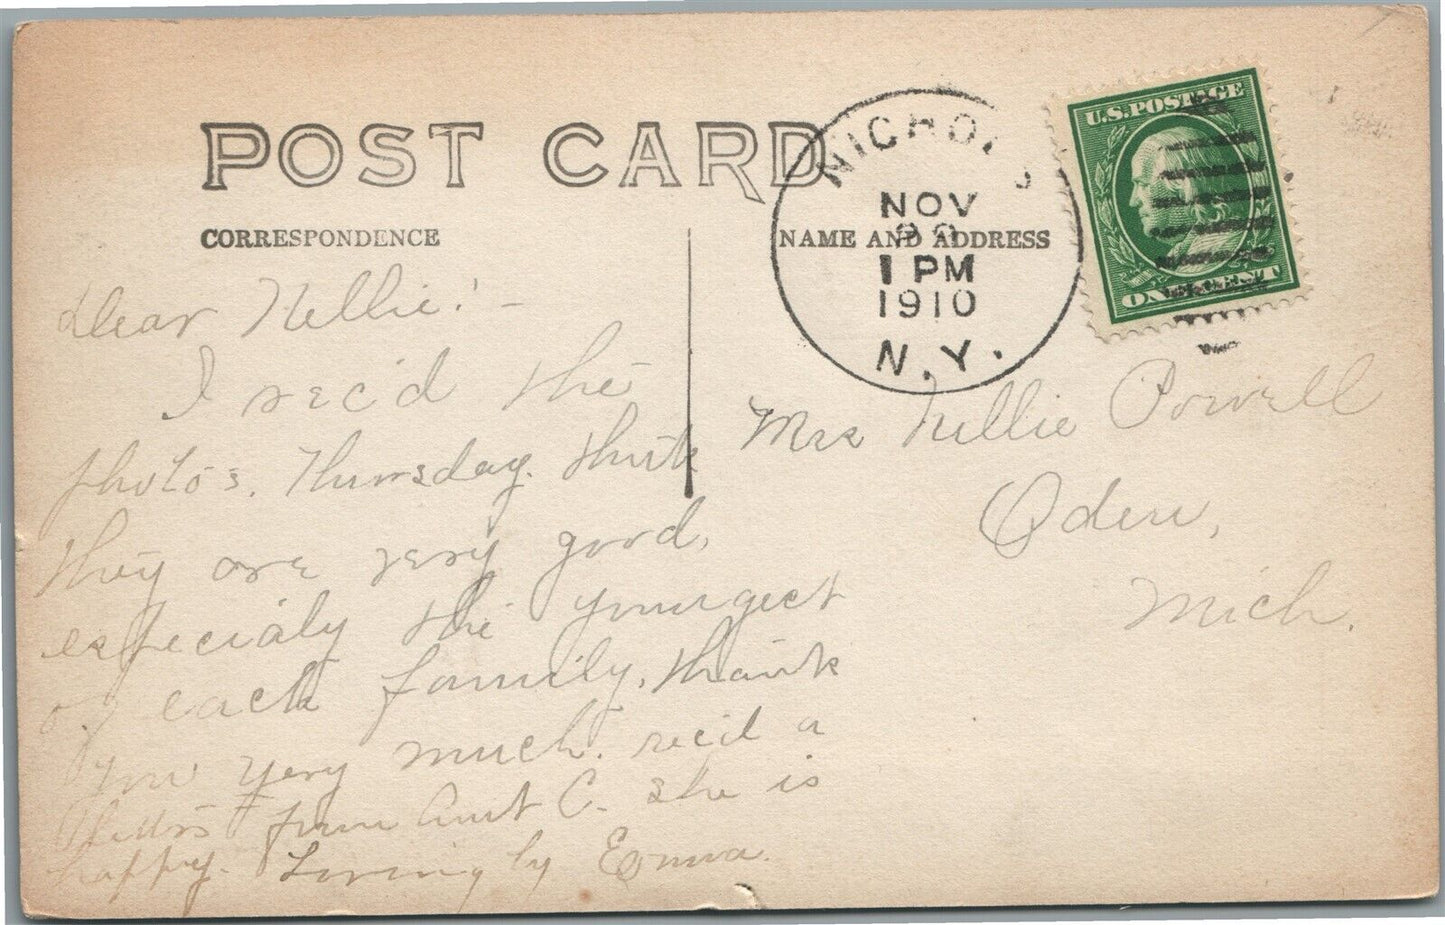 POST CARD
CORRESPONDENCE
NAME AND ADDRESS
NICHOLS
NOV
1 PM
1910
N.Y.
U.S. POSTAGE
ONE CENT
Dear Nellie! -
I rec'd the
photo's. Thursday. think
they are very good,
especialy the youngest
of each family. thank
you very much. rec'd a
from Aunt C. she is
happy. Lovingly Emma.
Mrs Nellie Powell
Oden,
Mich.